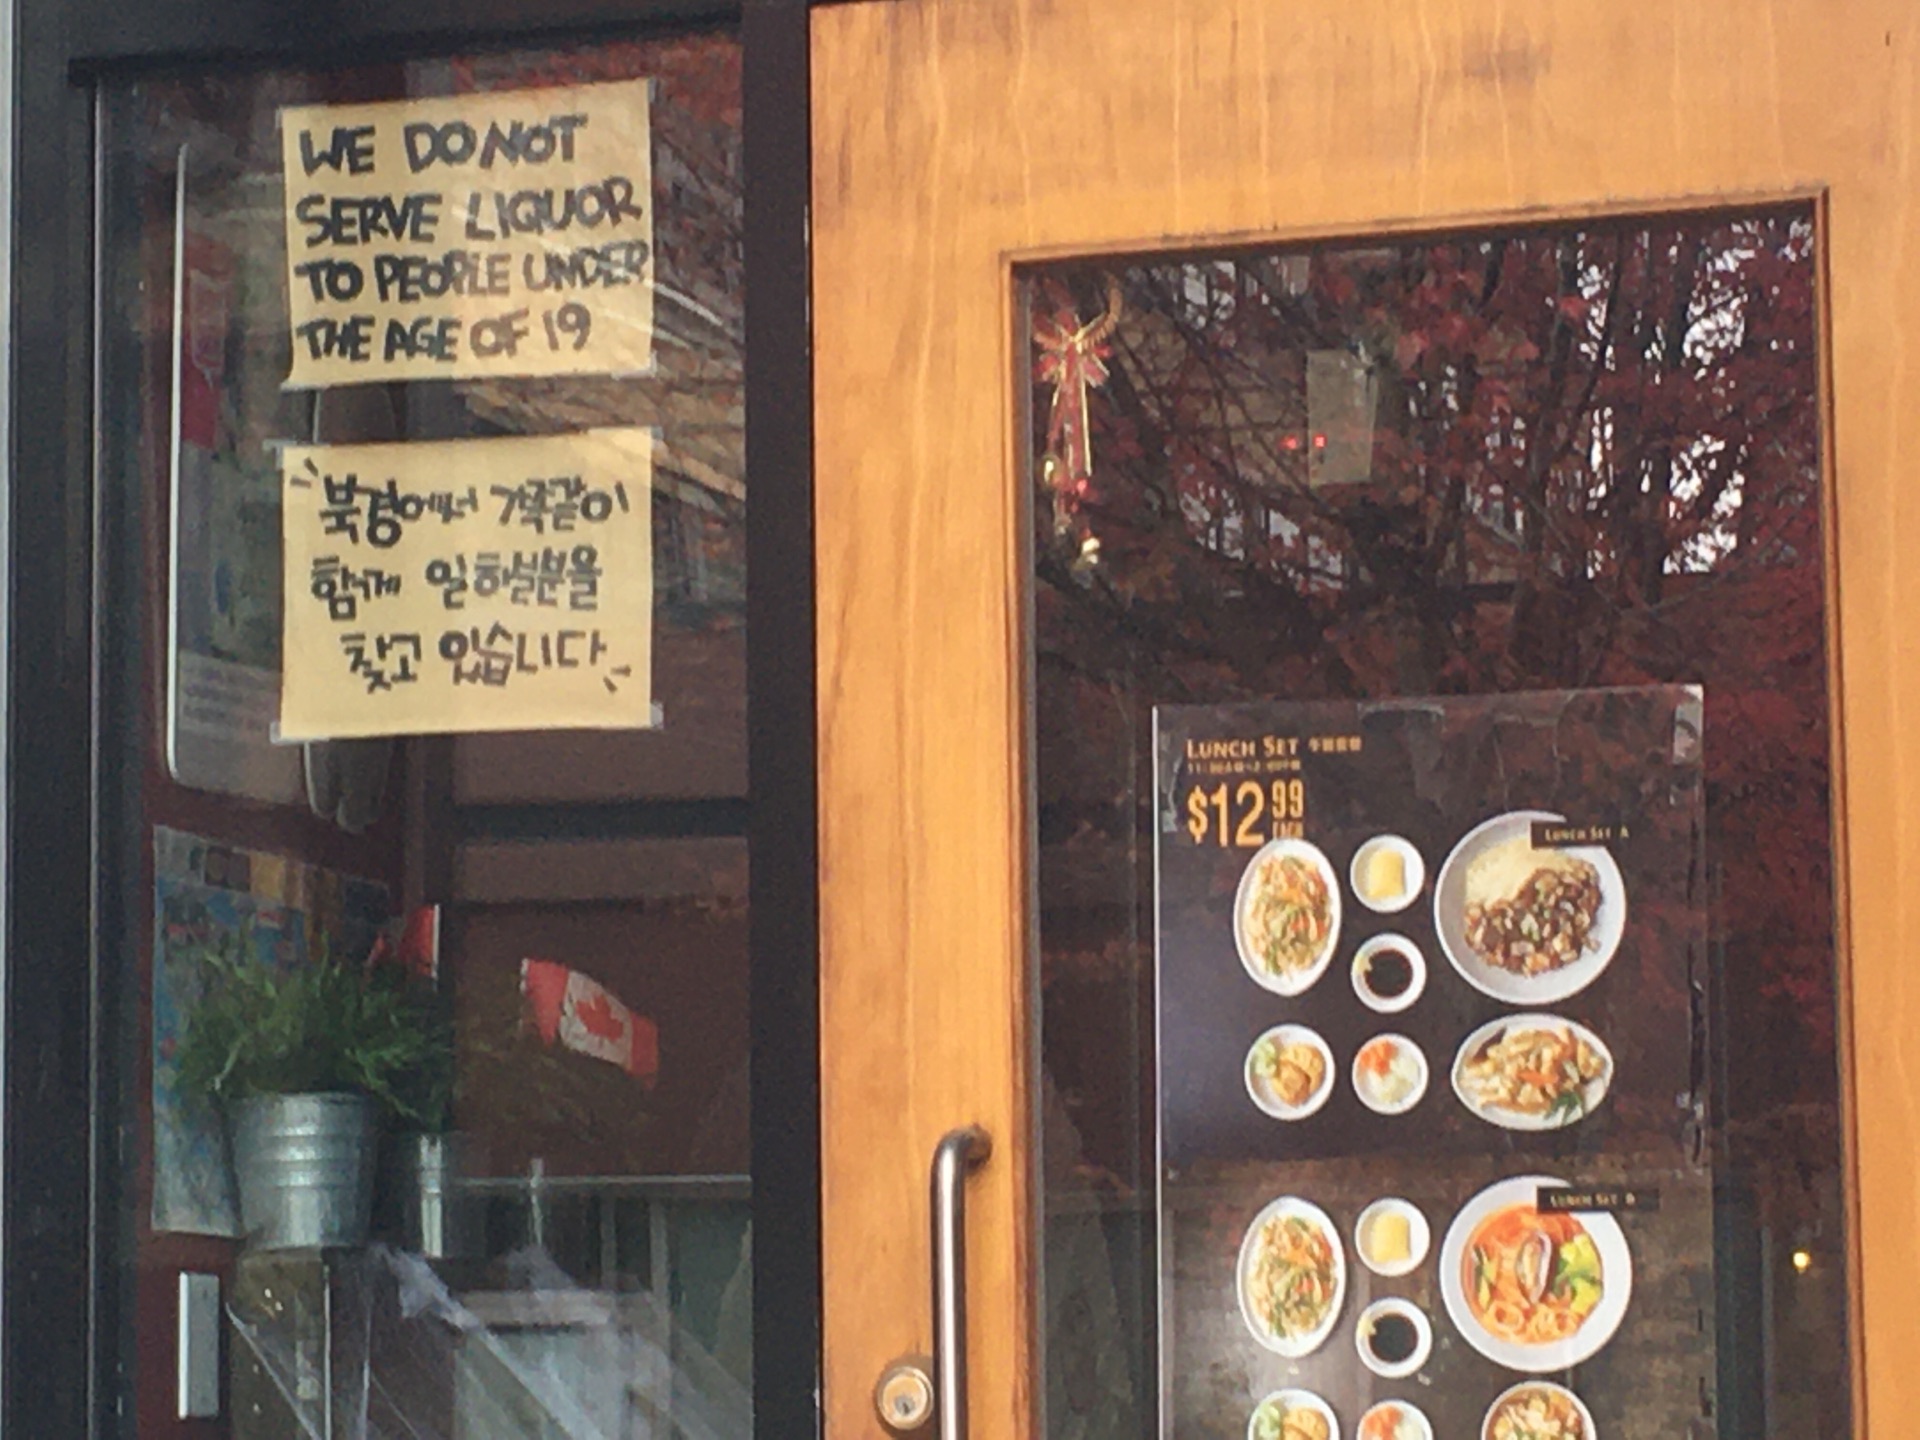 WE DO NOT
SERVE LIQUOR
TO PEOPLE UNDER
THE AGE OF 19
"북경에서 가족같이
함께 일하실분을
찾고 있습니다"
LUNCH SET
$12 99
EACH
LUNCH SET A
LUNCH SET B